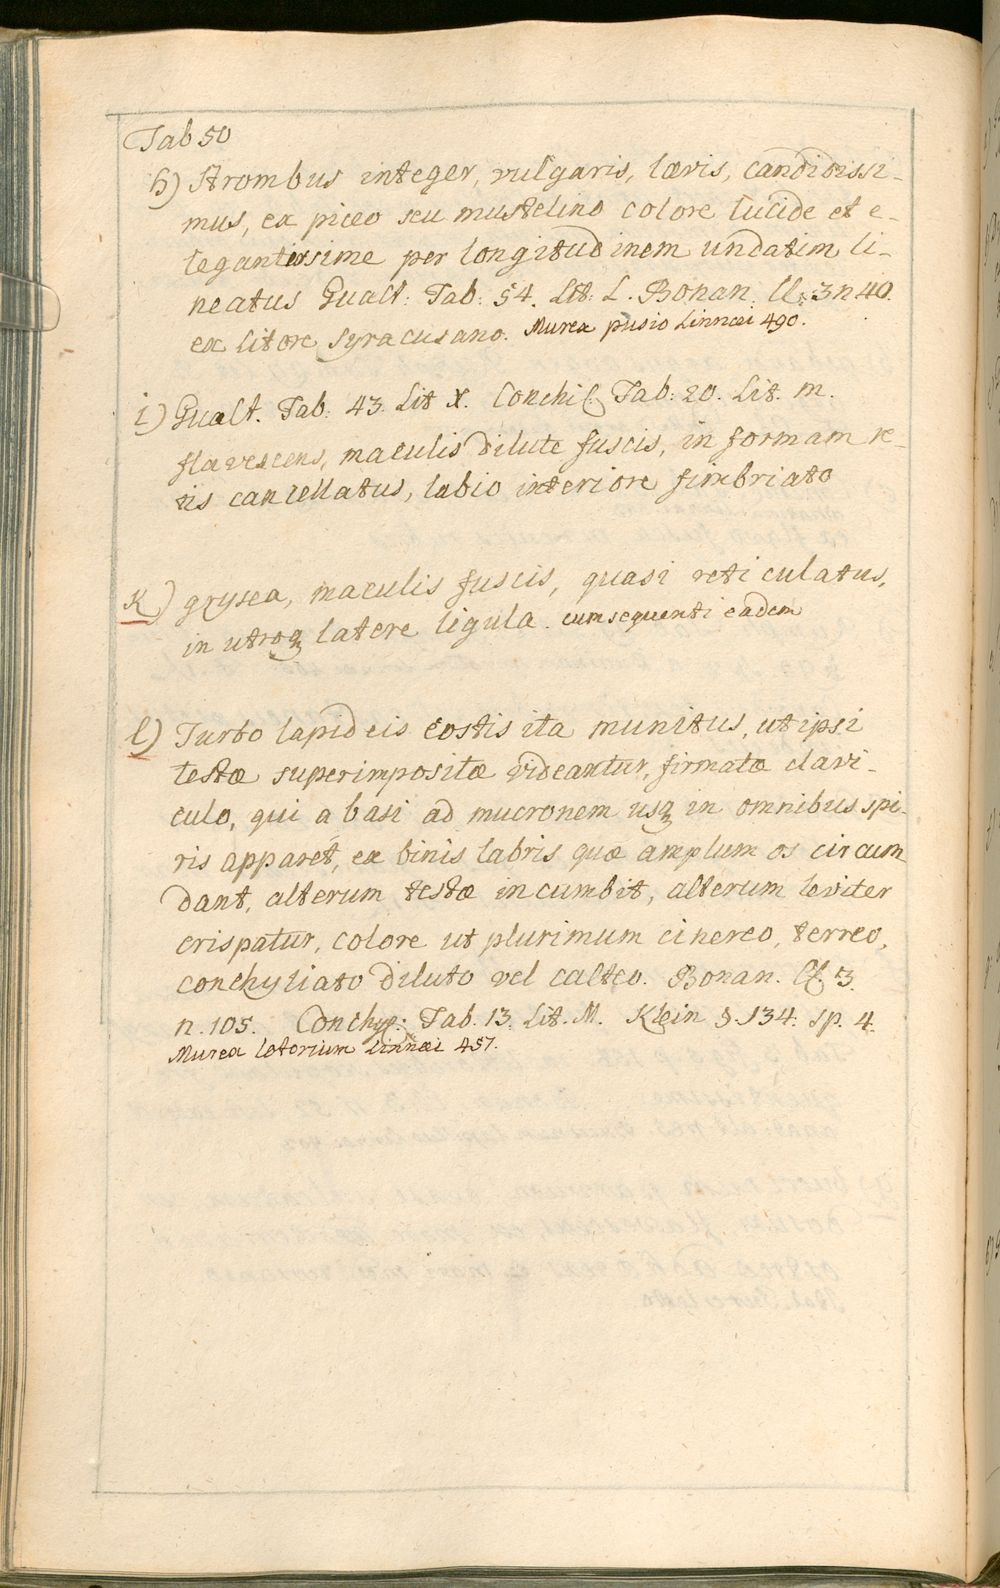 Tab 50
h) Strombus integer, vulgaris, lævis, candidissi-
mus, ex piceo seu mustelino colore lucide et e-
legantissime per longitudinem undatim li-
neatus Gualt: Tab: 54. Lit: L. Bonan. Cl. 3 n 40.
ex litore Syracusano. Murex pusio Linnæi 490.
i) Gualt. Tab: 43. Lit X. Conchil: Tab: 20. Lit. m.
flavescens, maculis dilute fuscis, in formam re-
tis cancellatus, labio interiore fimbriato
K) grysea, maculis fuscis, quasi reticulatus,
in utroqꝫ latere ligula. cum sequenti eadem
l) Turbo lapideis costis ita munitus, ut ipsi
testæ superimpositæ videantur, firmatæ clavi-
culo, qui a basi ad mucronem usqꝫ in omnibus spi-
ris apparet, ex binis labris quæ amplum os circum
dant, alterum testæ incumbit, alterum leviter
crispatur, colore ut plurimum cinereo, terreo,
conchyliato diluto vel calteo. Bonan. Cl. 3.
n. 105. Conchyl: Tab. 13. Lit. M. Klein §. 134: sp. 4.
Murex lotorium Linnæi 457.